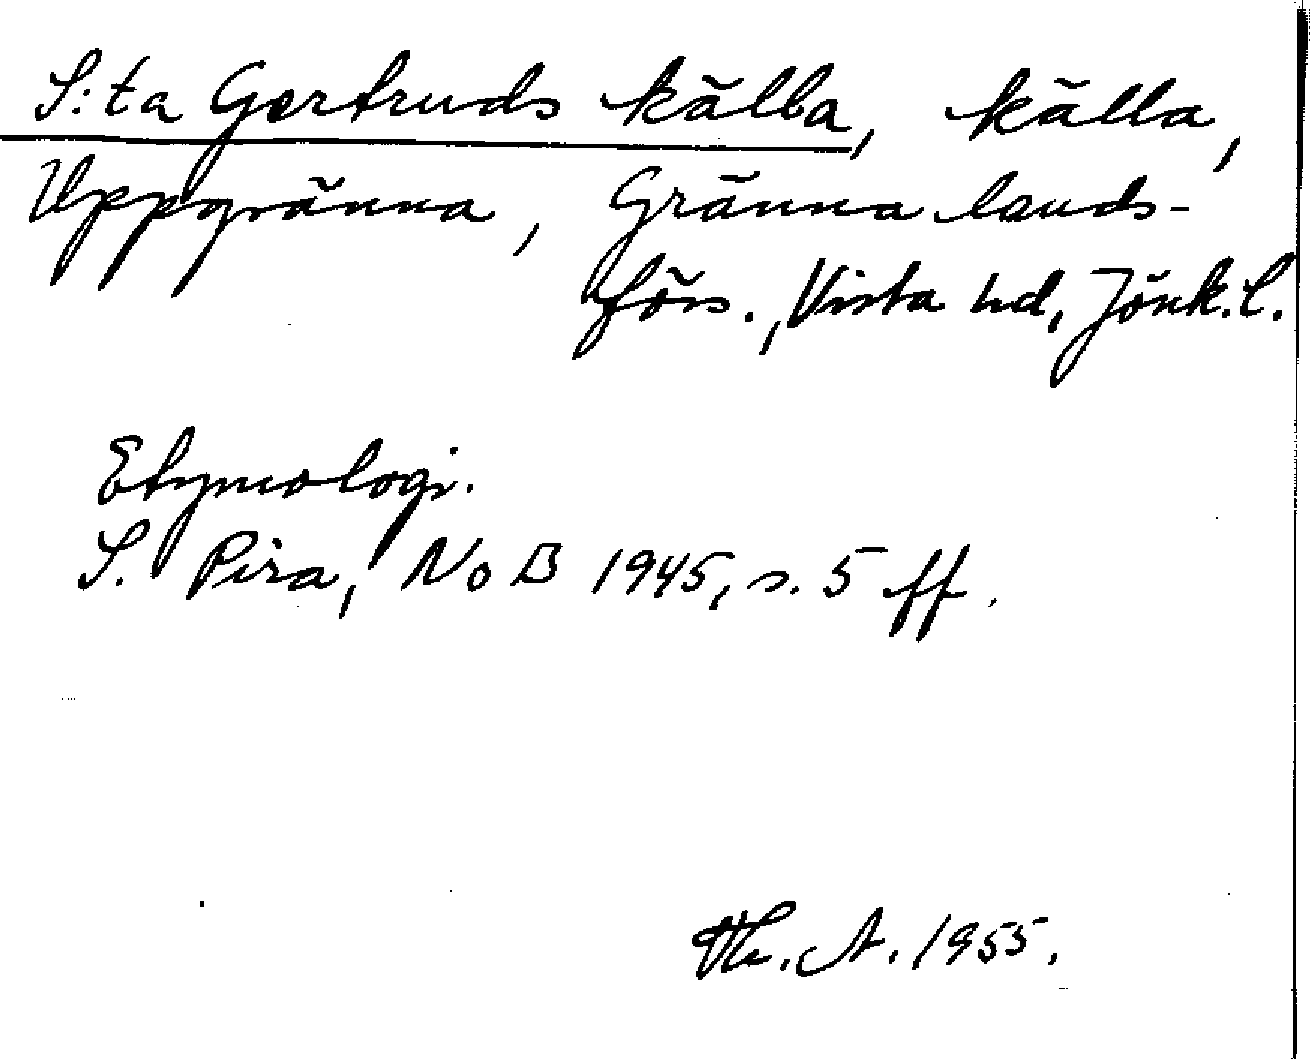 S:ta Gertruds källa, källa,
Uppgränna, Gränna lands-
förs., Vista hd, Jönk. l.
Etymologi.
S. Pira, NoB 1945, s. 5 ff.
Th. A. 1955.